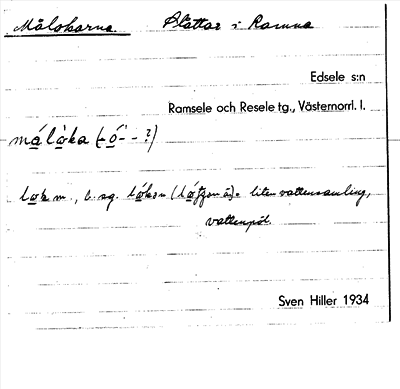 Målokarna Slåttar i Ramna
Edsele s:n
Ramsele och Resele tg., Västernorrl. l.
målòka (-ó- - ?)
lok m., b. sg. lókən ( ) = liten vattensamling,
vattenpöl.
Sven Hiller 1934